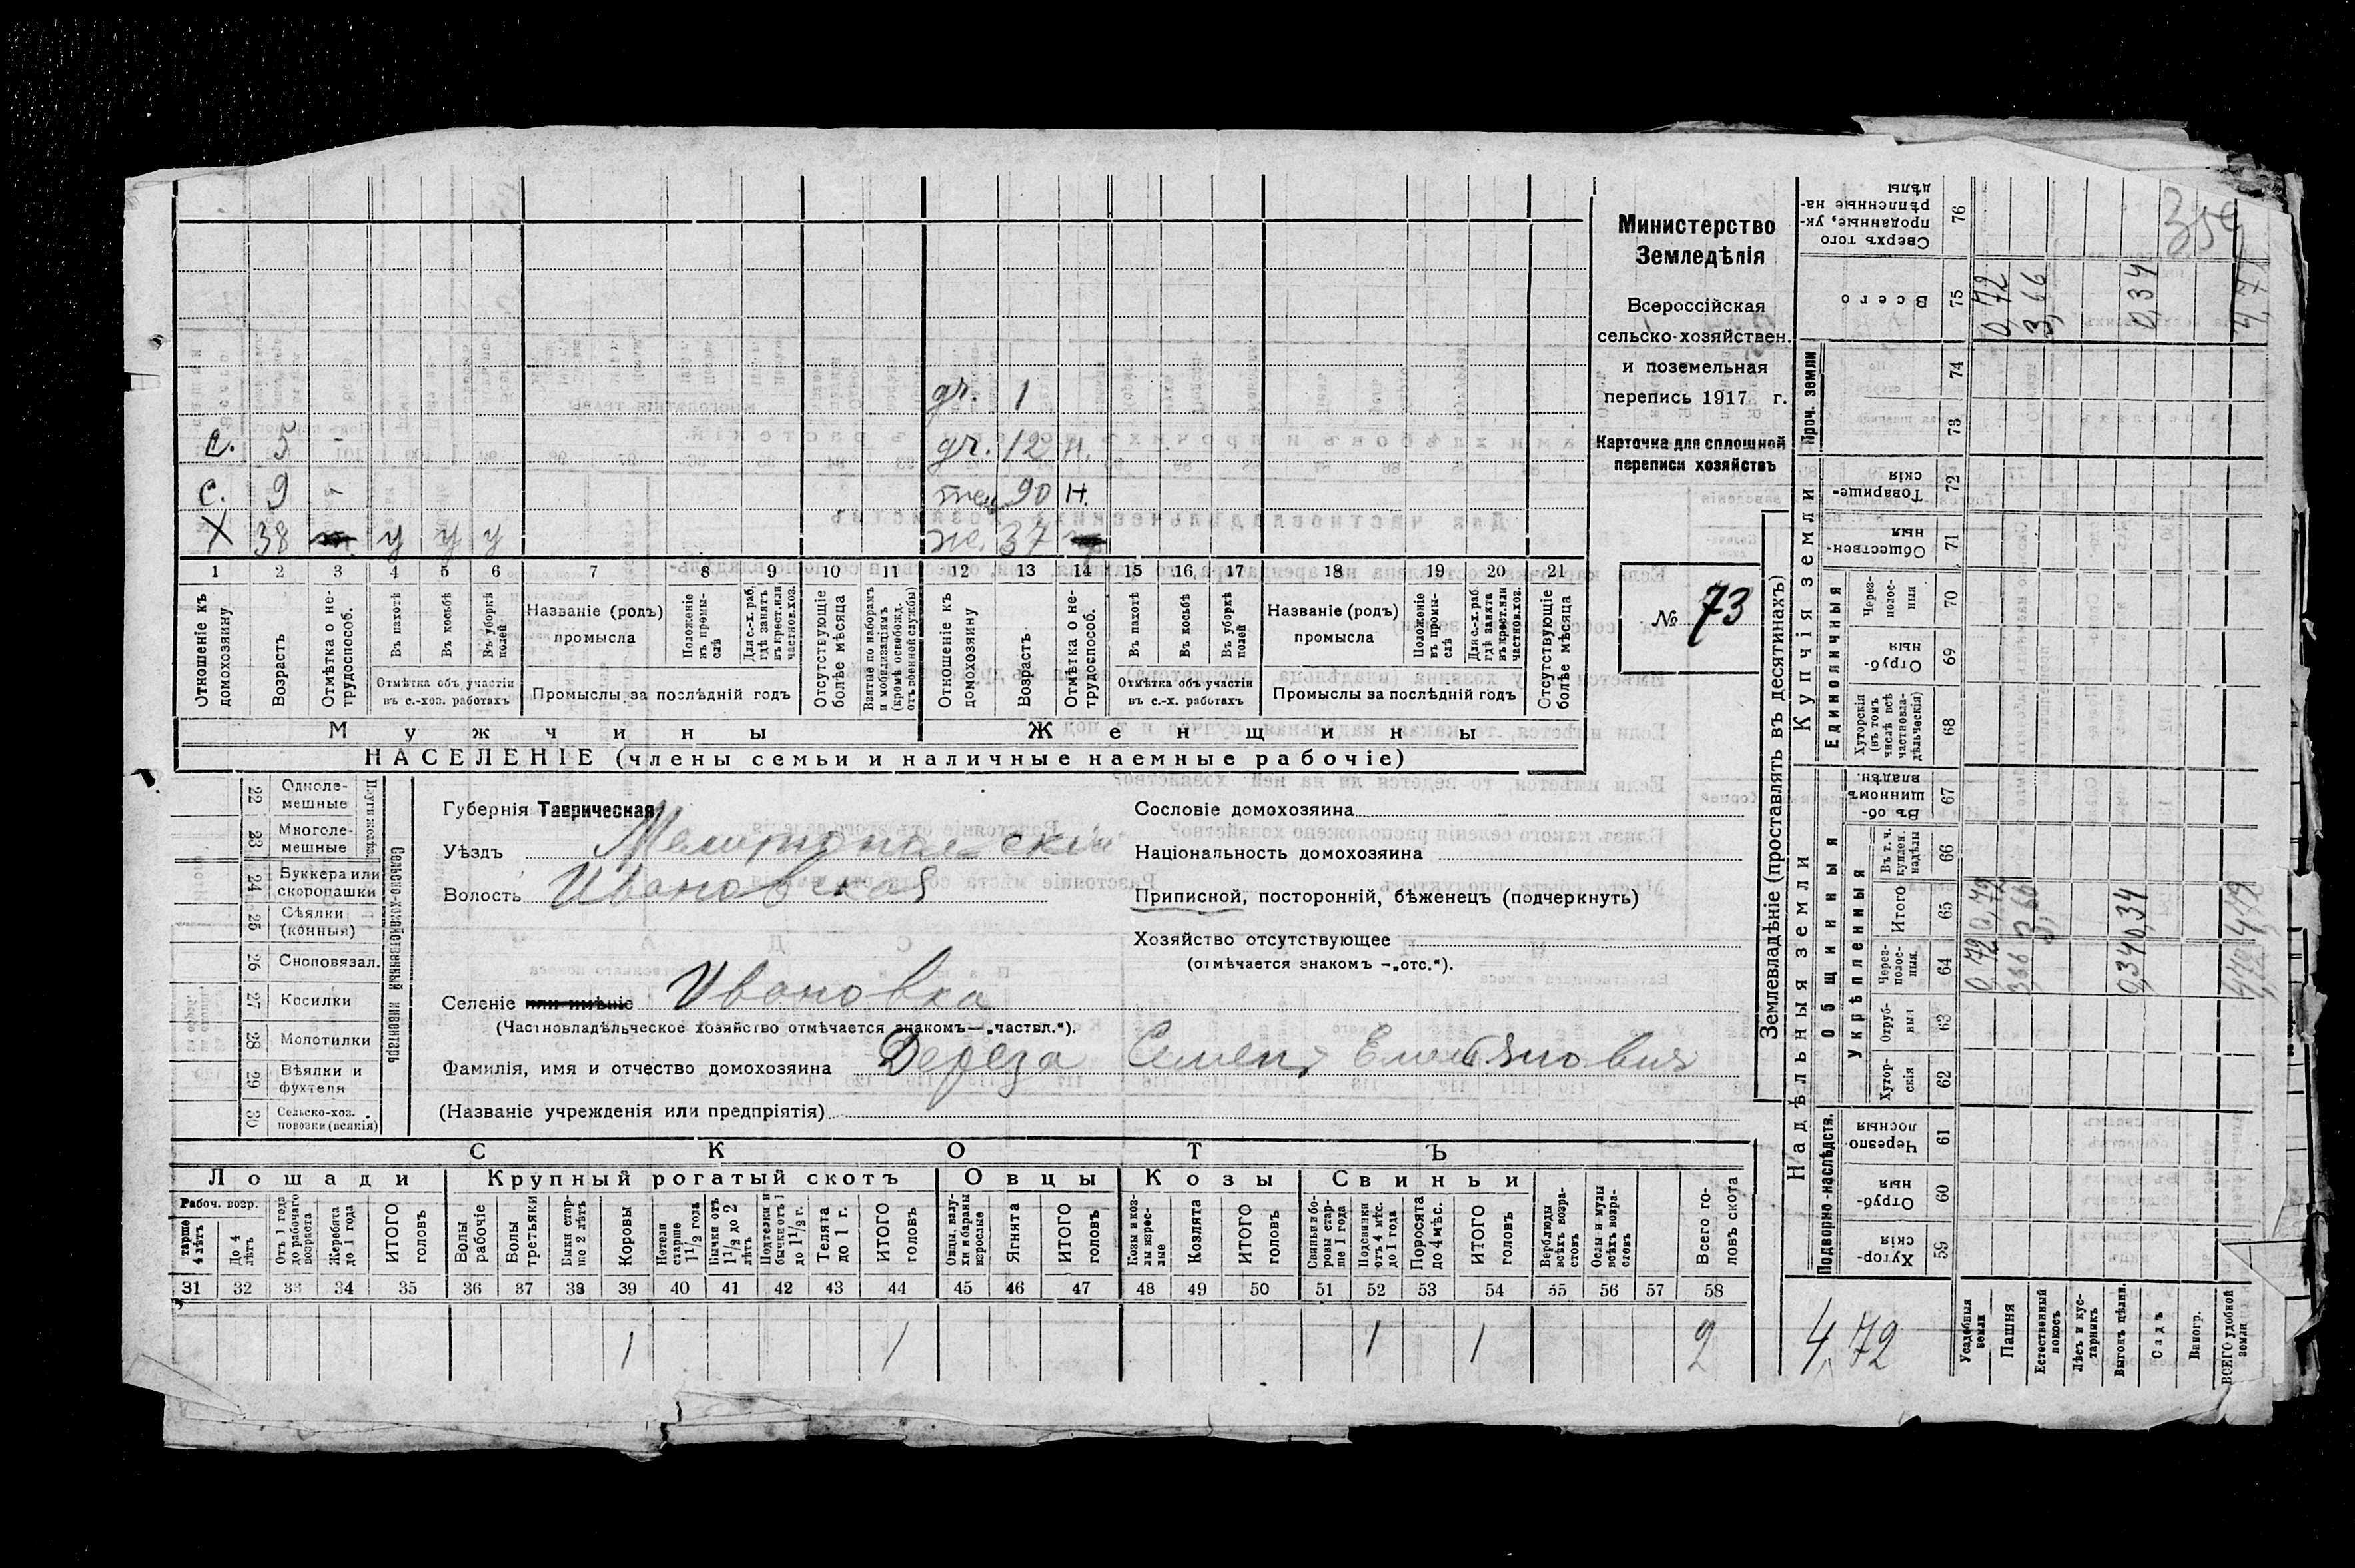 гр. 1
с. 5 - гр. 12 н.
с. 9 - 90 н.
Х 38 у у у же. 37
1 2 3 4 5 6 7 8 9 10 11 12 13 14 15 16 17 18 19 20 21
Отношеніе къ домохозяину
Возрастъ
Отмѣтка о нетрудоспособ.
Въ пахотѣ
Въ косьбѣ
Въ уборкѣ полей
Отмѣтка объ участіи
въ с.-хоз. работахъ
Названіе (родъ)
промысла
Положеніе въ промыслѣ
Для с.-х. раб. гдѣ занятъ въ крест. или частнов. хоз.
Промыслы за послѣдній годъ
Отсутствующіе болѣе мѣсяца
Взятые по наборамъ и мобилизаціямъ (кромѣ освобожд. отъ военной службы)
Отношеніе къ домохозяину
Возрастъ
Отмѣтка о нетрудоспособ.
Въ пахотѣ
Въ косьбѣ
Въ уборкѣ полей
Отмѣтка объ участіи
въ с.-х. работахъ
Названіе (родъ)
промысла
Положеніе въ промыслѣ
Для с.-х. раб. гдѣ занята въ крест. или частнов. хоз.
Промыслы за послѣдній годъ
Отсутствующіе болѣе мѣсяца
Мужчины Женщины
НАСЕЛЕНІЕ (члены семьи и наличные наемные рабочіе)
Министерство
Земледѣлія
Всероссійская
сельско-хозяйствен.
и поземельная
перепись 1917 г.
Карточка для сплошной
переписи хозяйствъ
№ 73
22 Однолемешные
23 Многолемешные
24 Буккера или скоропашки
25 Сѣялки (конныя)
26 Сноповязал.
27 Косилки
28 Молотилки
29 Вѣялки и фухтеля
30 Сельско-хоз. повозки (всякія)
Сельско-хозяйственный инвентарь
Губернія Таврическая
Уѣздъ Мелитопольскій
Волость Ивановская
Селеніе или имѣніе Ивановка
(Частновладѣльческое хозяйство отмѣчается знакомъ—„частвл.“).
Фамилія, имя и отчество домохозяина Дереза Семенъ Емельяновичъ
(Названіе учрежденія или предпріятія)
Сословіе домохозяина
Національность домохозяина
Приписной, посторонній, бѣженецъ (подчеркнуть)
Хозяйство отсутствующее
(отмѣчается знакомъ —„отс.“).
СКОТЪ
Лошади Крупный рогатый скотъ Овцы Козы Свиньи
Рабоч. возр.
тарше 4 лѣтъ
До 4 лѣтъ
Отъ 1 года до рабочаго возраста
Жеребята до 1 года
ИТОГО головъ
Волы рабочіе
Волы третьяки
Быки старше 2 лѣтъ
Коровы
Нетели старше 1 1/2 года
Бычки отъ 1 1/2 до 2 лѣтъ
Подтелки и бычки отъ 1 до 1 1/2 г.
Телята до 1 г.
ИТОГО головъ
Овцы, валухи и бараны взрослые
Ягнята
ИТОГО головъ
Козы и козлы взрослые
Козлята
ИТОГО головъ
Свиньи и боровы старше 1 года
Подсвинки отъ 4 мѣс. до 1 года
Поросята до 4 мѣс.
ИТОГО головъ
Верблюды всѣхъ возрастовъ
Ослы и мулы всѣхъ возрастовъ
Всего головъ скота
31 32 33 34 35 36 37 38 39 40 41 42 43 44 45 46 47 48 49 50 51 52 53 54 55 56 57 58
1 1 1 1 2
Землевладѣніе (проставлять въ десятинахъ)
Надѣльныя земли
Купчія земли
Проч. земли
Подворно-наслѣдств.
Общинныя
Укрѣпленныя
Единоличныя
Сверхъ того проданные, укрѣпленные надѣлы 76
Всего 75
74
73
Товарищескія 72
Общественныя 71
Черезполосныя 70
Отрубныя 69
Хуторскія (въ томъ числѣ всѣ частновладѣльческія) 68
Въ общинномъ владѣн. 67
Въ т. ч. куплен. надѣлы 66
Итого 65
Черезполосныя 64
Отрубныя 63
Хуторскія 62
Черезполосныя 61
Отрубныя 60
Хуторскія 59
359
0,72 3,66 0,34
0,72 3,66 0,34
0,72 3,66 0,34
4,72
Усадебныя земли
Пашня
Естественный покосъ
Лѣсъ и кустарникъ
Выгонъ цѣлин.
Садъ
Виногр.
ВСЕГО удобной земли